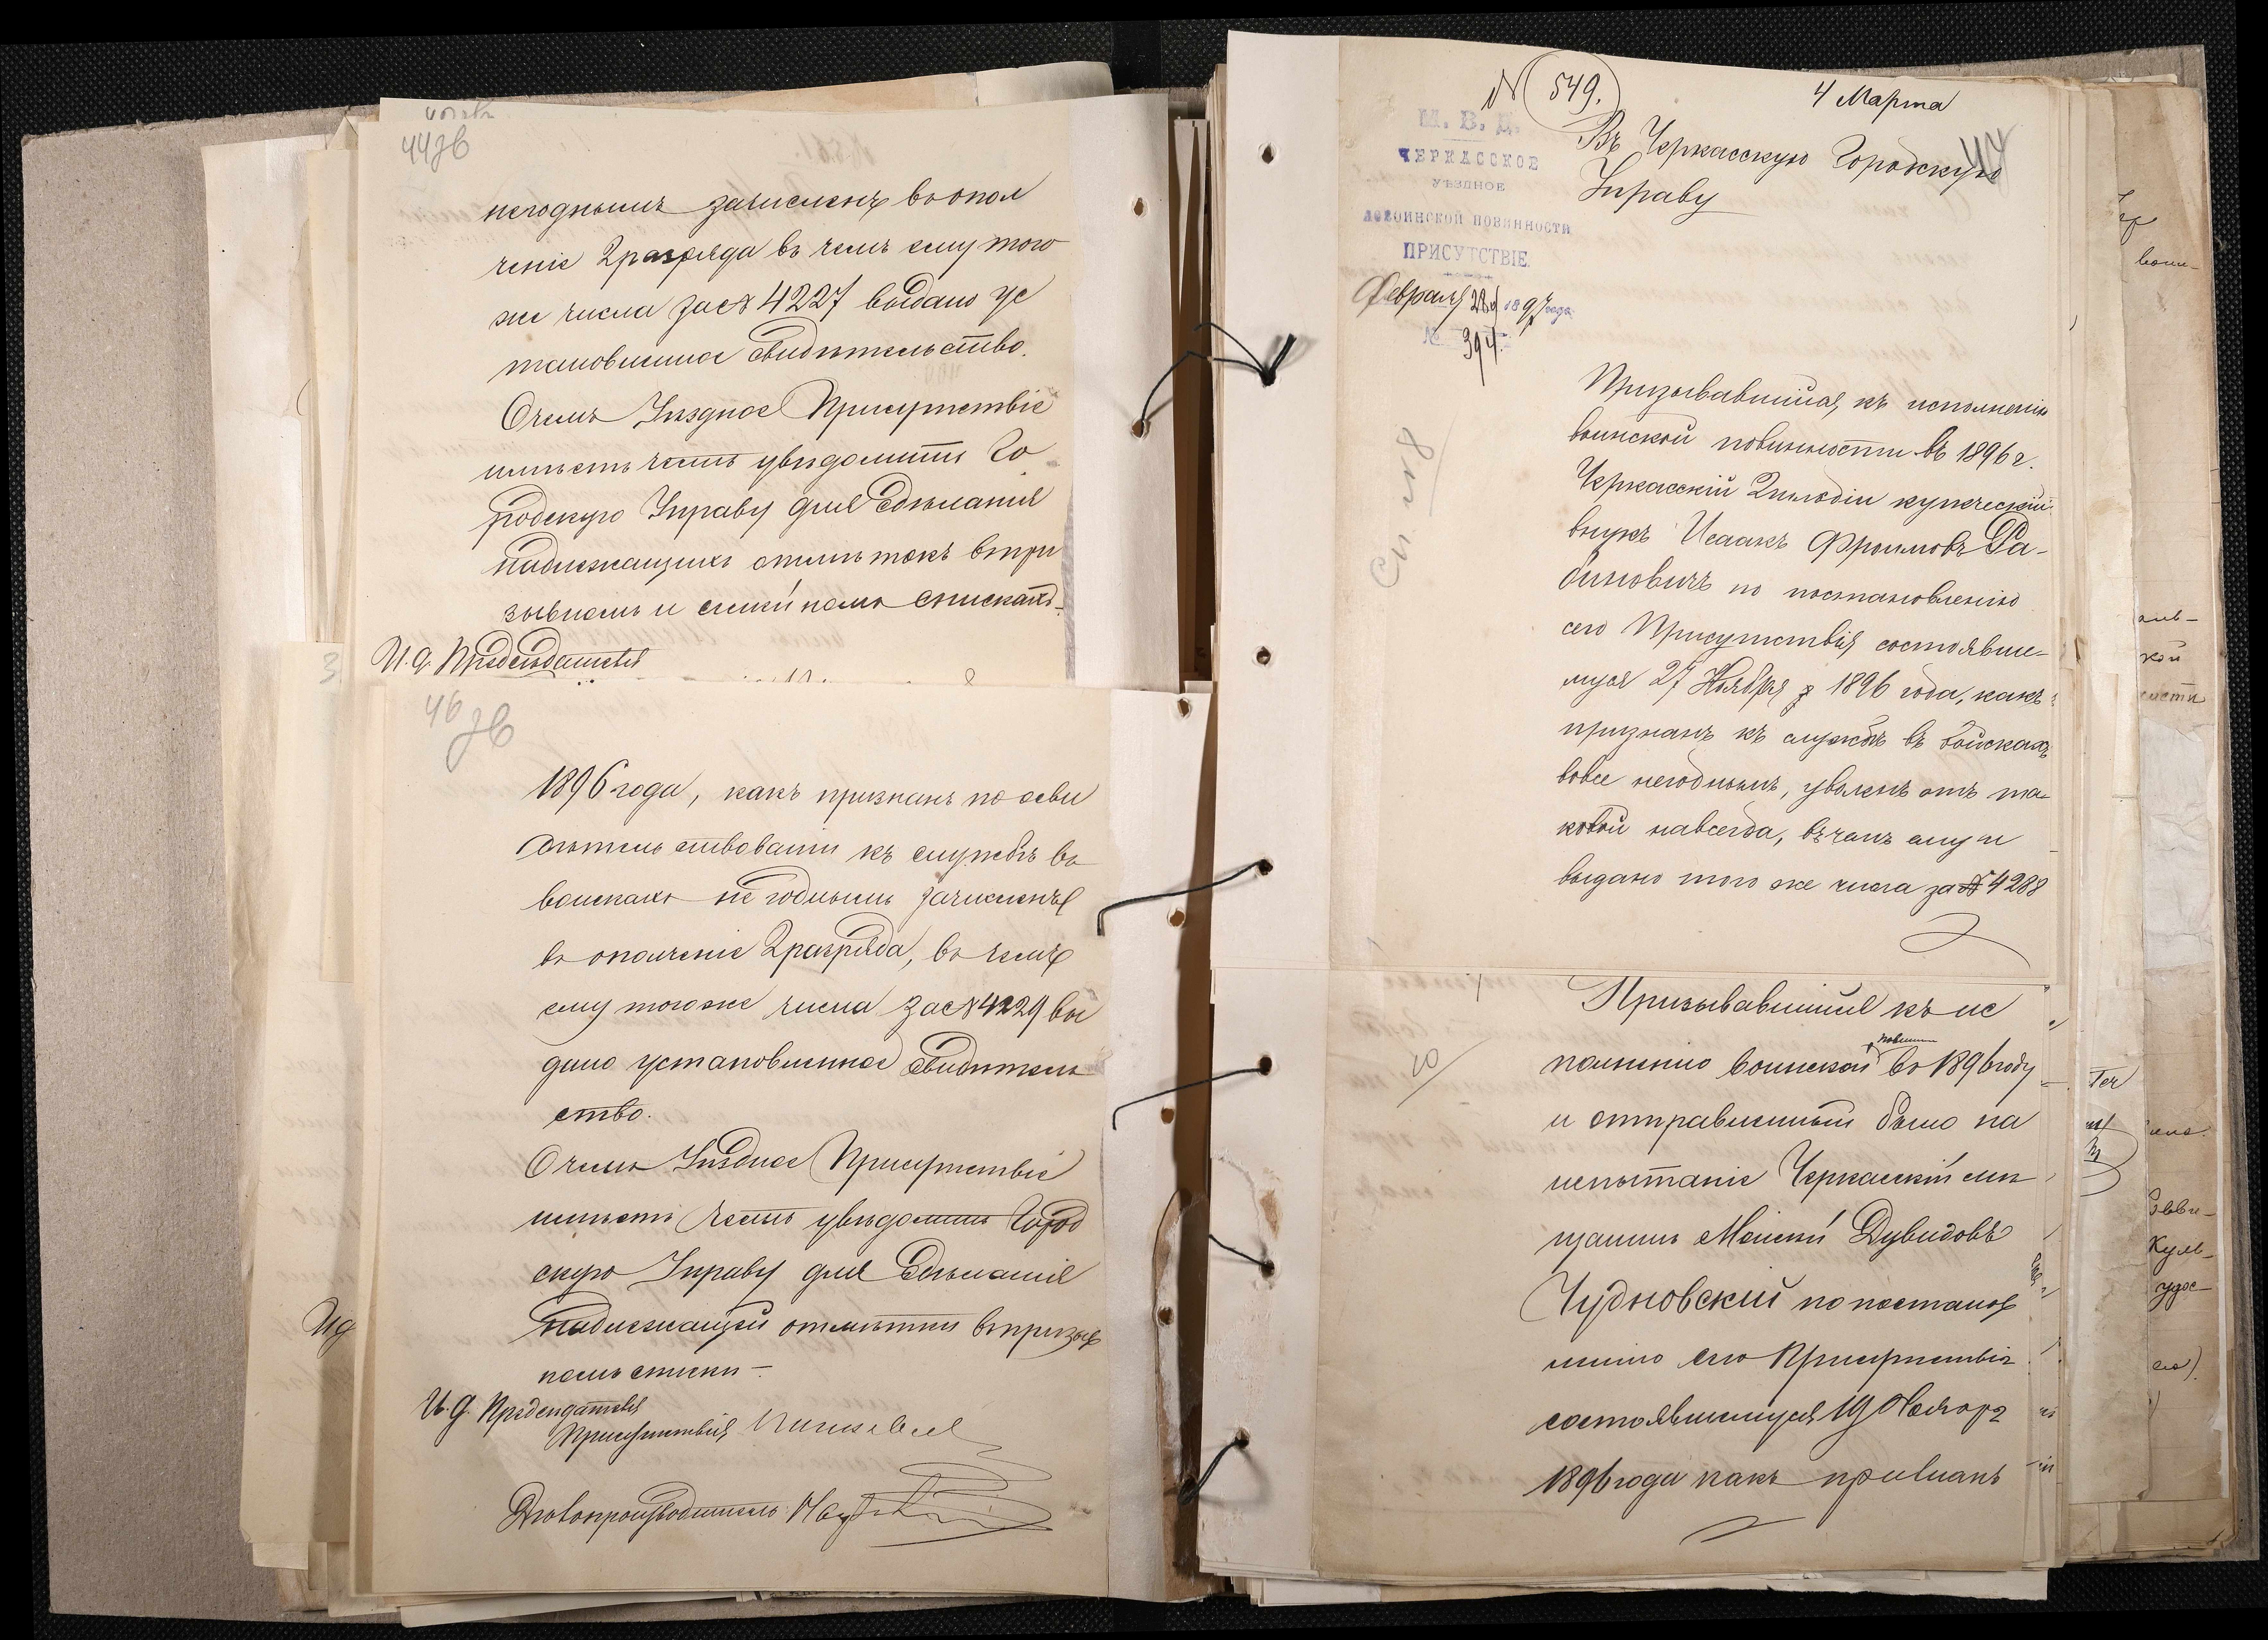 44 зв
негоднымъ зачисленъ въ опол
ченіе 2 разряда въ чемъ ему того
же числа за № 4227 выдано ус
тановленное свидѣтельство.
О чемъ Уѣздное Присутствіе
имѣетъ честь увѣдомить Го
родскую Управу для сдѣланія
надлежащихъ отмѣтокъ въ при
зывномъ и семейномъ спискахъ.
И. д. Предсѣдателя
46 зв
1896 года, какъ признанъ по осви
дѣтельствованіи къ службѣ въ
войскахъ не годнымъ зачисленъ
въ ополченіе 2 разряда, въ чемъ
ему того же числа за № 4229 вы
дано установленное свидѣтель
ство.
О чемъ Уѣздное Присутствіе
имѣетъ честь увѣдомить Город
скую Управу для сдѣланія
надлежащей отмѣтки въ призыв
номъ списки
И. д. Предсѣдателя
Присутствія
Дѣлопроизводитель
№ 549.
4 Марта
47
М. В. Д.
ЧЕРКАССКОЕ
УѢЗДНОЕ
ПО ВОИНСКОЙ ПОВИННОСТИ
ПРИСУТСТВІЕ.
Февраля 28 д 1897 года
№ 394.
Въ Черкасскую Городскую
Управу
Призывавшійся къ исполненію
воинской повинности въ 1896 г.
Черкасскій 2 гильдіи купеческій
внукъ Исаакъ Фроимовъ Ра-
биновичъ по постановленію
сего Присутствія состоявше-
муся 27 Ноября 1896 года, какъ
признанъ къ службѣ въ войскахъ
вовсе негоднымъ, уволенъ отъ та-
ковой навсегда, въ чемъ ему и
выдано того же числа за № 4288
Призывавшійся къ ис
полненію воинской повин въ 1896 году
и отправленный было на
испытаніе Черкасскій мѣ
щанинъ Мейски Дувидовъ
Чудновскій по постанов
ленію сего Присутствія
состоявшемуся 19 Ноября
1896 года какъ признанъ